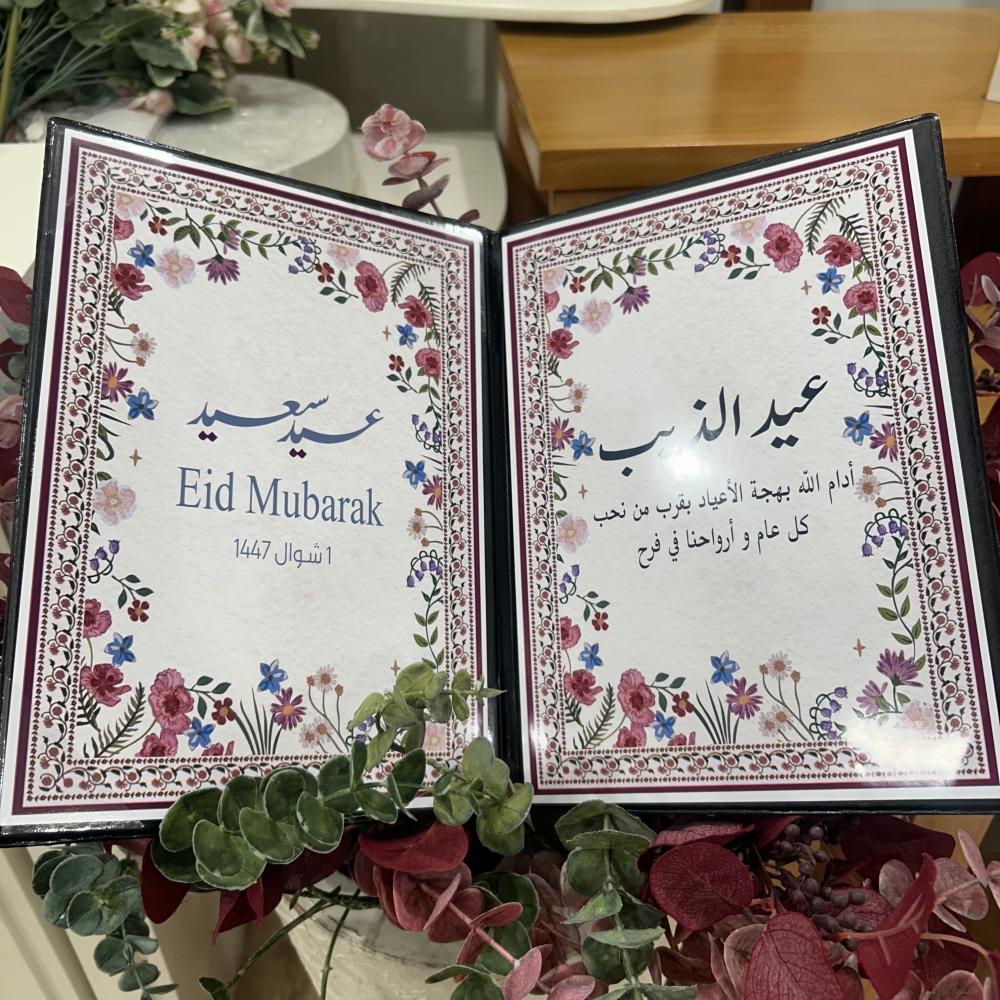 عيد سعيد
Eid Mubarak
1 شوال 1447
عيد الذيب
أدام الله بهجة الأعياد بقرب من نحب
كل عام و أرواحنا في فرح